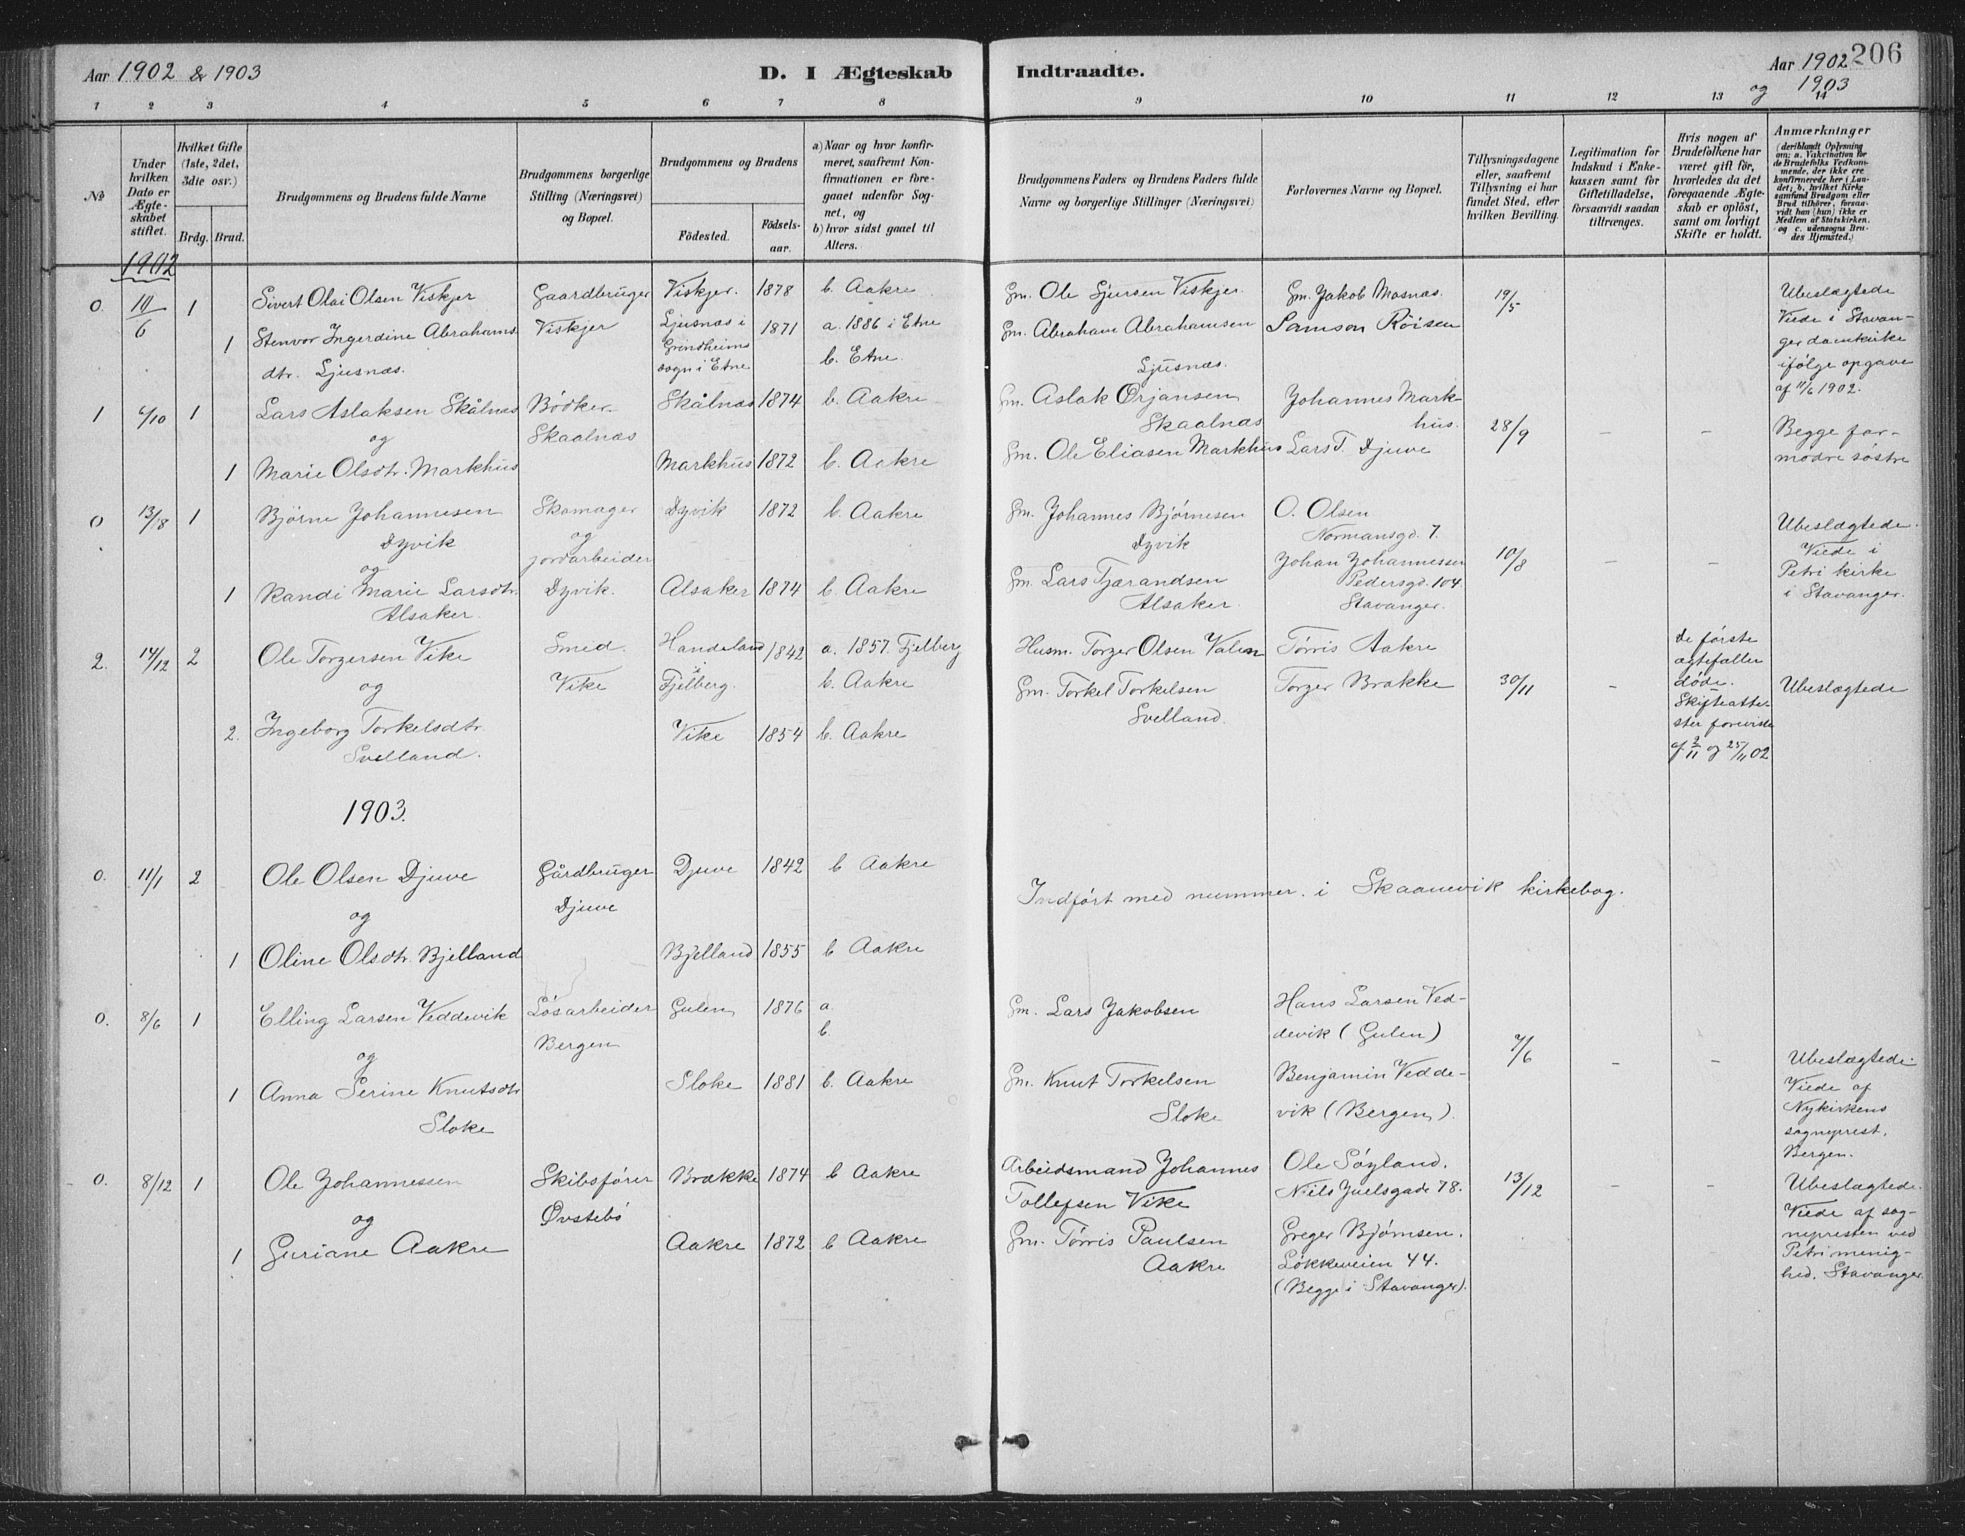 Aar 1902 & 1903
D. I Ægteskab Indtraadte.
Aar 1902 206
og 1903
1 2 3 4 5 6 7 8 9 10 11 12 13 14
No
Under hvilken Dato er Ægteskabet stiftet.
Hvilket Gifte (1ste, 2det, 3die osv.)
Brdg. Brud.
Brudgommens og Brudens fulde Navne
Brudgommens borgerlige Stilling (Næringsvei) og Bopæl.
Brudgommens og Brudens
Födested.
Födselsaar.
a) Naar og hvor konfirmeret, saafremt Konfirmationen er foregaaet udenfor Sognet, og
b) hvor sidst gaaet til Alters.
Brudgommens Faders og Brudens Faders fulde Navne og borgerlige Stillinger (Næringsvei)
Forlovernes Navne og Bopæl.
Tillysningsdagene eller, saafremt Tillysning ei har fundet Sted, efter hvilken Bevilling.
Legitimation for Indskud i Enkekassen samt for Giftetilladelse, forsaavidt saadan tiltrænges.
Hvis nogen af Brudefolkene har været gift för, hvorledes da det foregaaende Ægteskab er oplöst, samt om lovligt Skifte er holdt.
Anmærkninger
(deriblandt Oplysning om: a. Vakcination for de Brudefolks Vedkommende, der ikke ere konfirmerede her i Landet; b. hvilket Kirkesamfund Brudgom eller Brud tilhörer, forsaavidt han (hun) ikke er Medlem af Statskirken, og c. udensogns Brudes Hjemsted.)
1902
0. 10/6 1 Sivert Olai Olsen Viskjer Gaardbruger Viskjer. 1878 b. Aakre Gm. Ole Sjursen Viskjer. Gm. Jakob Mosnas. 19/5 Ubeslægtede
1 Stenvor Ingerdine Abrahams- Viskjer Ljusnæs i 1871 a. 1886 i Etne Gm. Abraham Abrahamsen Samson Röisen Viede i Stavan-
dtr. Ljusnæs. Grindheims sogn i Etne b. Etne. Ljusnæs. ger domkirke
ifölge opgave
af 11/6 1902.
1 6/10 1 Lars Aslaksen Skålnas Bödker Skålnas 1874 b. Aakre Gm. Aslak Ørjansen Johannes Mark-
og Skaalnæs Skaalnas hus. 28/9 - - Begge for-
1 Marie Olsdtr. Markhus Markhus 1872 b. Aakre Gm. Ole Eliasen Markhus Lars T. Djuve mödre söstre
0 13/8 1 Bjørne Johannesen Skomager Dyvik 1872 b. Aakre Gm. Johannes Bjørnesen O. Olsen Ubeslægtede.
Dyvik og Dyvik Normansgd. 7. Viede i
og jordarbeider Johan Johannessen 10/8 - - Petri kirke
1 Randi Marie Larsdtr. Dyvik. Alsaker 1874 b. Aakre Gm. Lars Tjærandsen Pedersgd. 104 i Stavanger.
Alsaker. Alsaker. Stavanger.
2. 14/12 2 Ole Torgersen Vike Smed. Handeland 1842 a. 1857. Fjelberg Husm. Torger Olsen Valen Tørris Aakre de første
og Vike i Fjelberg. b. Aakre Gm. Torkel Torkelsen Torger Brakke 30/11 - ægtefæller døde. Ubeslægtede
2. Ingeborg Torkelsdtr. Vike 1854 b. Aakre Svelland. Skifteatte-
Svelland. ster foreviste
af 2/11 og 25/11 02
1903.
0. 11/1 2 Ole Olsen Djuve Gårdbruger Djuve 1842 b Aakre
og Djuve Indført med nummer. i Skaanevik kirkebog.
1 Oline Olsdtr. Bjelland Bjelland 1855 b Aakre
0. 8/6 1 Elling Larsen Veddevik Løsarbeider Gulen 1876 a. Gm. Lars Jakobsen Hans Larsen Ved-
Bergen b. devik (Gulen)
og 7/6 - - Ubeslægtede.
1 Anna Serine Knutsdtr Sloke 1881 b. Aakre Gm. Knut Torkelsen Benjamin Vedde- Viede af
Sloke Sloke vik (Bergen). Nykirkens
sogneprest.
Bergen.
0. 8/12 1 Ole Johannessen Skibsfører Brække 1874 b Aakre Arbeidsmand Johannes Ole Söyland. 13/12 - - Ubeslægtede.
og Øvstebö Tollefsen Vike Niels Juelsgade 78. Viede af sog-
1 Guriane Aakre Aakre 1872 b Aakre Gm. Tørris Paulsen Greger Bjørnsen. nepresten ved
Aakre Løkkeveien 44. Petri menig-
(Begge i Stavanger). hed. Stavanger